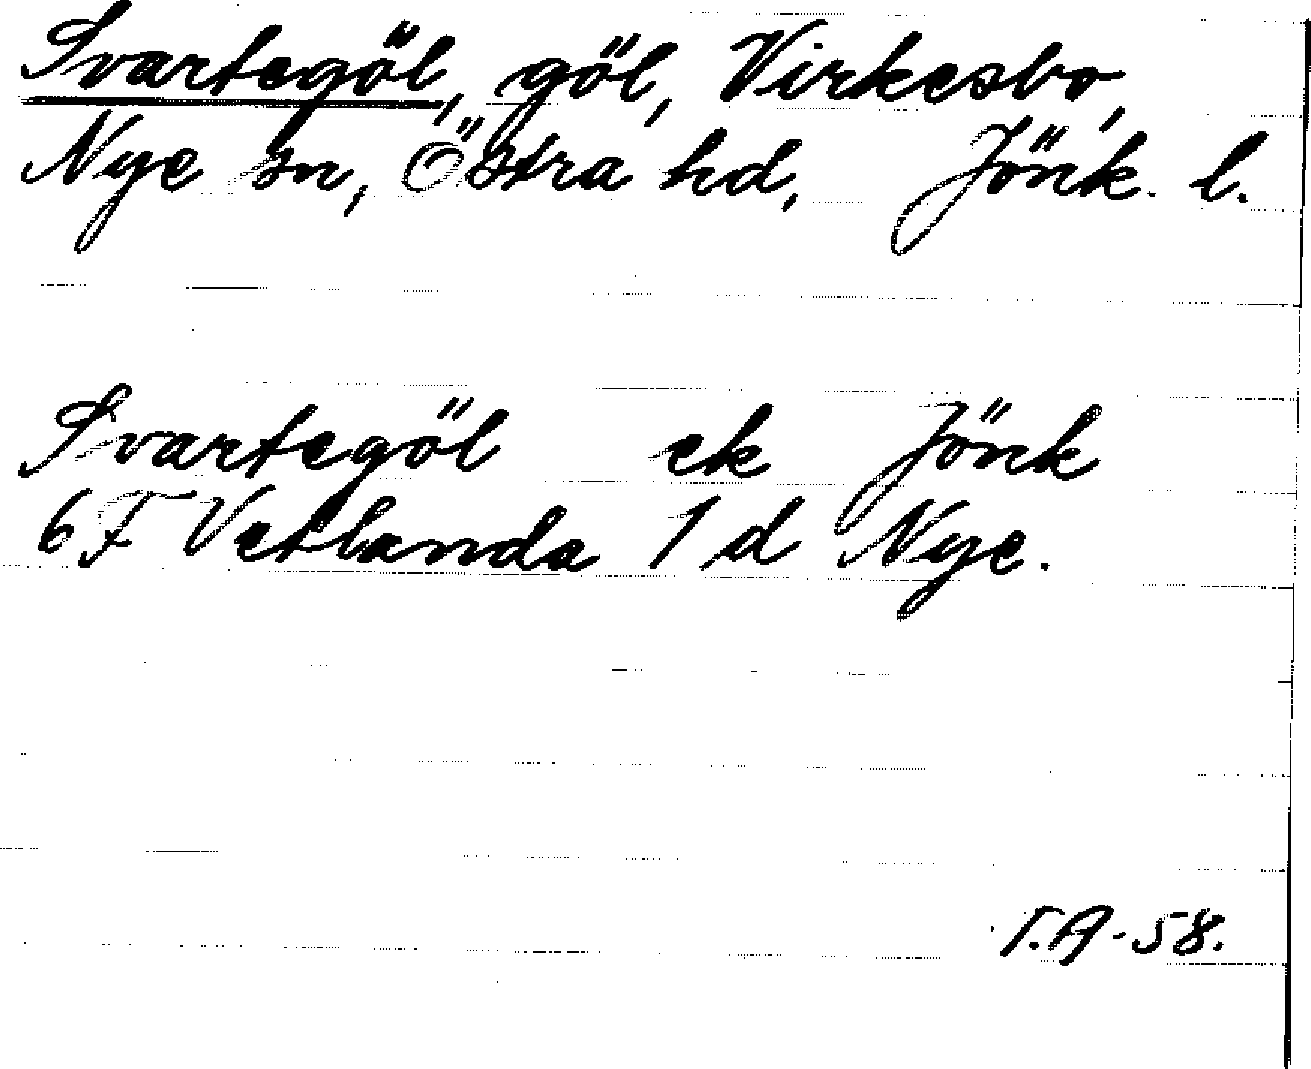 Svartegöl, göl, Virkesbo,
Nye sn, Östra hd, Jönk. l.
Svartegöl ek Jönk
6 F Vetlanda 1 d Nye.
T.A-58.